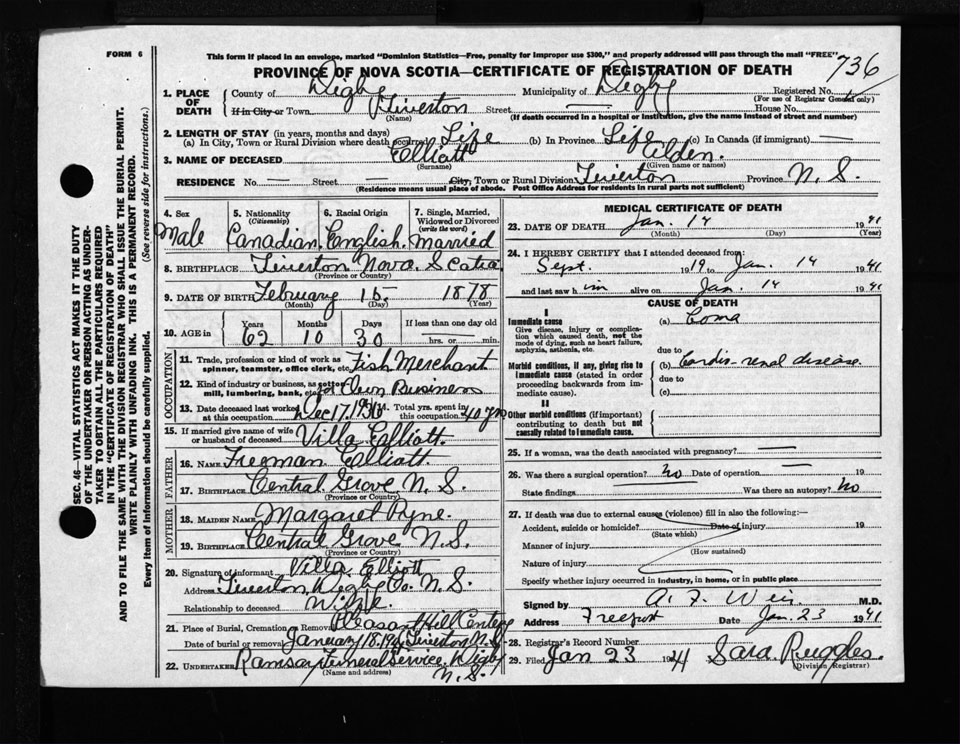 FORM 6
This form if placed in an envelope, marked "Dominion Statistics—Free, penalty for improper use $300," and properly addressed will pass through the mail "FREE"
736
PROVINCE OF NOVA SCOTIA—CERTIFICATE OF REGISTRATION OF DEATH
1. PLACE OF DEATH
County of Digby Municipality of Digby Registered No.
(For use of Registrar General only)
If in City or Town Tiverton Street — House No.
(Name) (If death occurred in a hospital or institution, give the name instead of street and number)
2. LENGTH OF STAY (in years, months and days)
(a) In City, Town or Rural Division where death occurred Life (b) In Province Life (c) In Canada (if immigrant) —
3. NAME OF DECEASED Elliott Elden.
(Surname) (Given name or names)
RESIDENCE No. — Street — City, Town or Rural Division Tiverton Province N. S.
(Residence means usual place of abode. Post Office Address for residents in rural parts not sufficient)
4. Sex Male
5. Nationality (Citizenship) Canadian
6. Racial Origin English.
7. Single, Married, Widowed or Divorced (write the word) Married
8. BIRTHPLACE Tiverton Nova Scotia
(Province or Country)
9. DATE OF BIRTH February 15. 1878
(Month) (Day) (Year)
10. AGE in Years Months Days If less than one day old
62 10 30 hrs. or min.
OCCUPATION
11. Trade, profession or kind of work as spinner, teamster, office clerk, etc. Fish Merchant
12. Kind of industry or business, as cotton mill, lumbering, bank, etc. Own Business
13. Date deceased last worked at this occupation Dec 17, 19
14. Total yrs. spent in this occupation 40 yrs
15. If married give name of wife or husband of deceased Villa Elliott.
FATHER
16. NAME Freeman Elliott.
17. BIRTHPLACE Central Grove N. S.
(Province or Country)
MOTHER
18. MAIDEN NAME Margaret Pyne.
19. BIRTHPLACE Central Grove N.S.
(Province or Country)
20. Signature of informant Villa Elliott
Address Tiverton Digby Co. N. S.
Relationship to deceased Wife.
21. Place of Burial, Cremation or Removal Pleasant Hill
Date of burial or removal January 18, 1941 Tiverton N.S.
22. UNDERTAKER Ramsay Funeral Service, Digby
N. S.
(Name and address)
MEDICAL CERTIFICATE OF DEATH
23. DATE OF DEATH Jan. 14 1941
(Month) (Day) (Year)
24. I HEREBY CERTIFY that I attended deceased from:
Sept. 1919 to Jan. 14 1941
and last saw him alive on Jan. 14 1941
CAUSE OF DEATH
I
Immediate cause (a) Coma
Give disease, injury or complication which caused death, not the mode of dying, such as heart failure, asphyxia, asthenia, etc.
due to
Morbid conditions, if any, giving rise to immediate cause (stated in order proceeding backwards from immediate cause).
(b) Cardio-renal disease.
due to
(c)
II
Other morbid conditions (if important) contributing to death but not causally related to immediate cause.
25. If a woman, was the death associated with pregnancy? —
26. Was there a surgical operation? No Date of operation — 19
State findings Was there an autopsy? No
27. If death was due to external causes (violence) fill in also the following:—
Accident, suicide or homicide? Date of injury 19
(State which)
Manner of injury
(How sustained)
Nature of injury
Specify whether injury occurred in industry, in home, or in public place
Signed by A. F. Weir M.D.
Address Freeport Date Jan. 23 1941
28. Registrar's Record Number
29. Filed Jan 23 1941 Sara Ruggles.
(Division Registrar)
SEC. 46—VITAL STATISTICS ACT MAKES IT THE DUTY
OF THE UNDERTAKER OR PERSON ACTING AS UNDER-
TAKER TO OBTAIN ALL THE PARTICULARS REQUIRED
IN THE "CERTIFICATE OF REGISTRATION OF DEATH"
AND TO FILE THE SAME WITH THE DIVISION REGISTRAR WHO SHALL ISSUE THE BURIAL PERMIT.
WRITE PLAINLY WITH UNFADING INK. THIS IS A PERMANENT RECORD.
Every item of information should be carefully supplied. (See reverse side for instructions.)